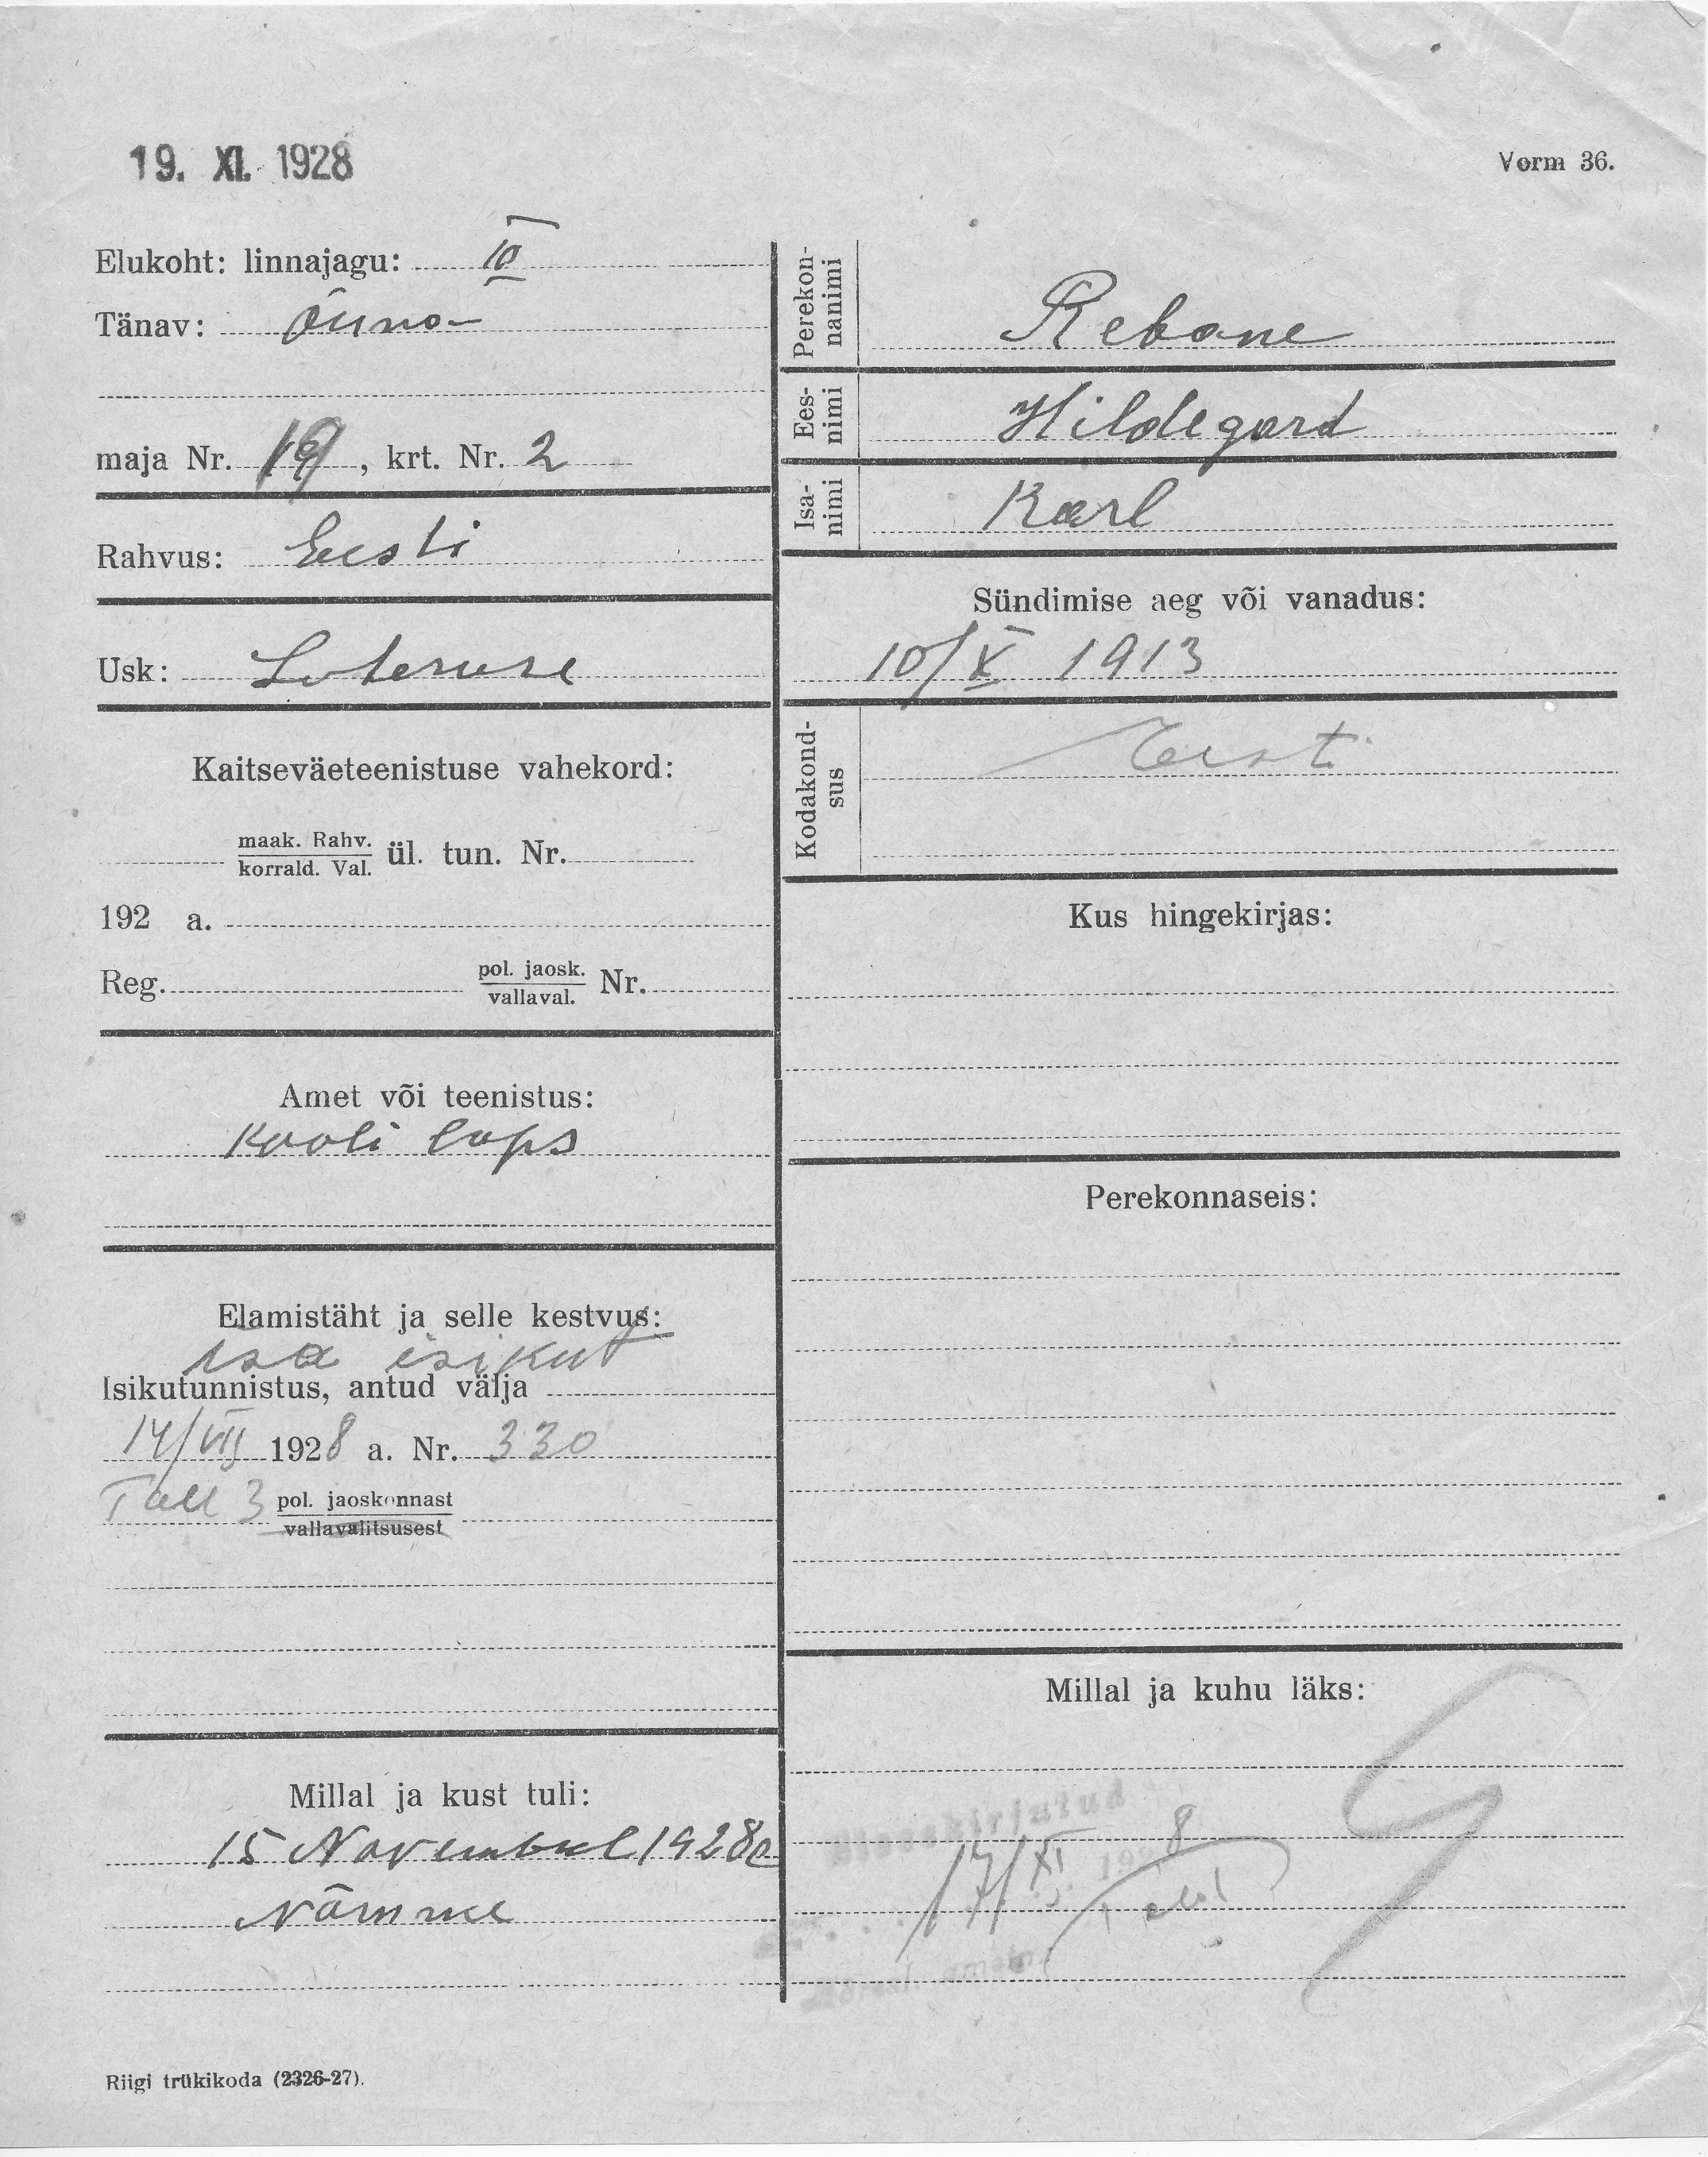 19. XI. 1928
Vorm 36.
Elukoht: linnajagu: III
Tänav: Õuna
maja Nr. 19, krt. Nr. 2
Rahvus: Eesti
Usk: Luteruse
Kaitseväeteenistuse vahekord:
maak. Rahv.
korrald. Val. ül. tun. Nr.
192 a.
Reg. pol. jaosk.
vallaval. Nr.
Amet või teenistus:
Kooli laps
Elamistäht ja selle kestvus:
isa isikut
Isikutunnistus, antud välja
14/VII 1928 a. Nr. 330
Tall 3 pol. jaoskonnast
vallavalitsusest
Millal ja kust tuli:
15 Novembril 1928 a
Nõmme
Riigi trükikoda (2326-27).
Perekon-
nanimi
Rebane
Ees-
nimi
Hildegard
Isa-
nimi
Karl
Sündimise aeg või vanadus:
10/X 1913
Kodakond-
sus
Eesti
Kus hingekirjas:
Perekonnaseis:
Millal ja kuhu läks:
Sissekirjutud
17/XI 1928